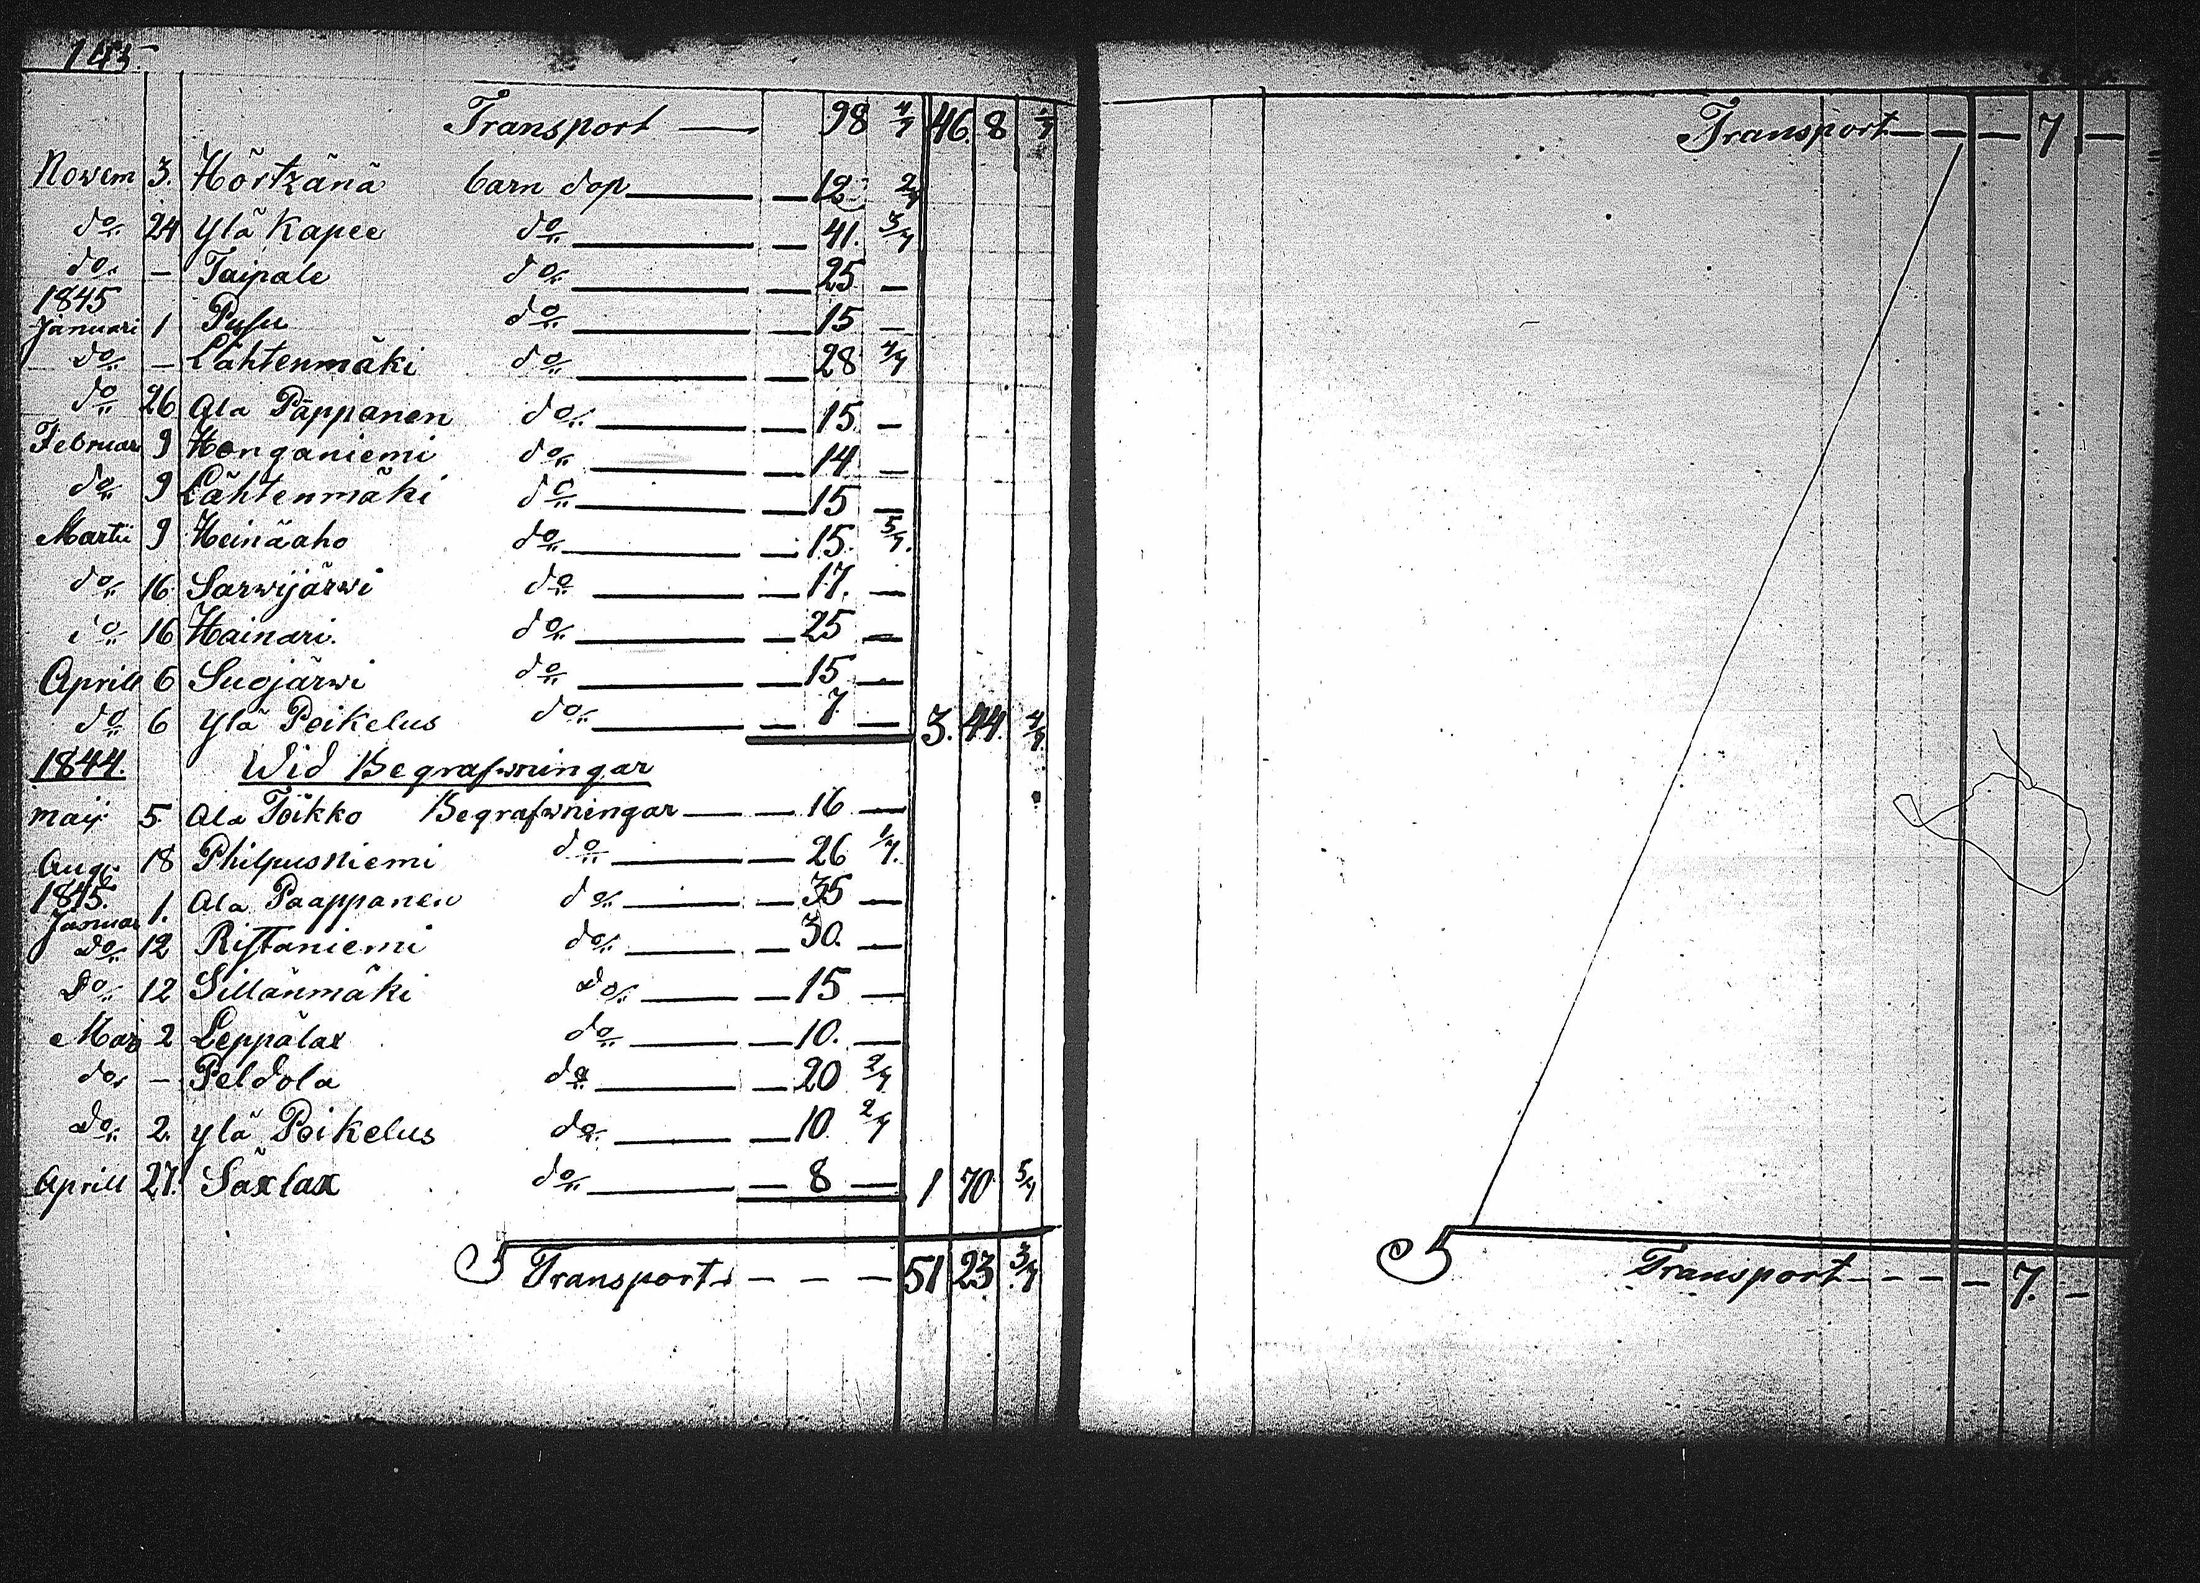 143.
Transport — 98 4/7 46. 8 1/7
Novem 3. Hörtkänä barn dop — 12 2/7
do 24 Ylä Kapee do — 41. 3/7
do — Taipale do — 25 —
1845
Januari 1 Pusu do — 15 —
do — Lähtenmäki do — 28 4/7
do 26 Ala Päppanen do — 15. —
Februar 9 Honganiemi do — 14 —
do 9 Lähtenmäki do — 15 —
Martii 9 Heinäaho do — 15. 5/7.
do 16 Sarwijärwi do — 17. —
do 16 Hainari. do — 25 —
Aprill 6 Suojärwi do — 15 —
do 6 Ylä Peikelus do — 7 — 3. 44. 4/7.
1844. Wid Begrafwningar
maij 5 Ala Töikko Begrafwningar — 16 —
Aug: 18 Philpusniemi do — 26 1/7.
1845.
Januar 1. Ala Paappanen do — 35 —
do 12 Ristaniemi do — 30. —
Do 12 Sillänmäki Do — 15 —
Mars 2 Leppälax do — 10. —
do — Peldola do — 20 2/7
Do 2. ylä Peikelus do — 10. 2/7
Aprill 27. Säxlax do — 8 — 1 70 5/7
Transport — — — 51 23 3/7
Transport — — — 7 —
Transport — — — — — 7. —